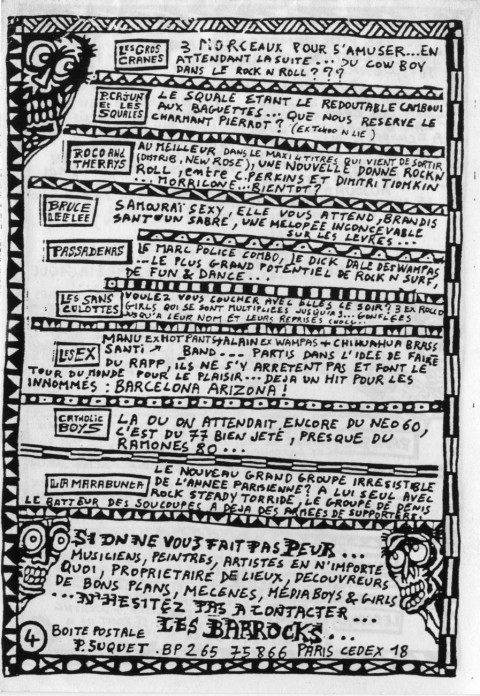 LES GROS CRANES
3 MORCEAUX POUR S'AMUSER...EN
ATTENDANT LA SUITE... DU COW BOY
DANS LE ROCK N ROLL ? ? ?
P.CAJUN ET LES SQUALES
LE SQUALE ETANT LE REDOUTABLE CAMBOUI
AUX BAGUETTES... QUE NOUS RESERVE LE
CHARMANT PIERROT ? (EX TCHOO N LIE)
ROCO AND THERRYS
AU MEILLEUR DANS LE MAXI 4 TITRES QUI VIENT DE SORTIR
(DISTRIB, NEW ROSE), UNE NOUVELLE DONNE ROCKN
ROLL, entre C.PERKINS ET DIMITRI TIOMKIN
...MORRICONE...BIENTOT ?
BRUCE LEE LEE
SAMOURAÏ SEXY, ELLE VOUS ATTEND, BRANDIS
SANT UN SABRE, UNE MELOPEE INCONCEVABLE
SUR LES LEVRES...
PASSADENAS
LE MARC POLICE COMBO, LE DICK DALE DES WAMPAS
... LE PLUS GRAND POTENTIEL DE ROCK N SURF,
DE FUN & DANCE...
LES SANS CULOTTES
VOULEZ VOUS COUCHER AVEC ELLES LE SOIR ? 3 EX ROCCO
GIRLS QUI SE SONT MULTIPLIEES JUSQU'A 5... GONFLEES
JUSQU'A LEUR NOM ET LEURS REPRISES
LES EX
MANU EX HOT PANTS + ALAIN EX WAMPAS + CHIHUAHUA BRASS
SANTI + BAND... PARTIS DANS L'IDEE DE FAIRE
DU RAPP, ILS NE S'Y ARRETENT PAS ET FONT LE
TOUR DU MONDE POUR LE PLAISIR... DEJA UN HIT POUR LES
INNOMMÉS : BARCELONA ARIZONA !
CATHOLIC BOYS
LA OU ON ATTENDAIT ENCORE DU NEO 60,
C'EST DU 77 BIEN JETÉ, PRESQUE DU
RAMONES 80...
LA MARABUNTA
LE NOUVEAU GRAND GROUPE IRRESISTIBLE
DE L'ANNEE PARISIENNE ? A LUI SEUL AVEC
ROCK STEADY TORRIDE, LE GROUPE DE DENIS
LE BATTEUR DES SOUCOUPES A DEJA DES ARMEES DE SUPPORTERS !
SI ON NE VOUS FAIT PAS PEUR...
MUSICIENS, PEINTRES, ARTISTES EN N'IMPORTE
QUOI, PROPRIETAIRE DE LIEUX, DECOUVREURS
DE BONS PLANS, MECENES, MEDIA BOYS & GIRLS
... N'HESITEZ PAS A CONTACTER...
LES BARROCKS...
4
BOITE POSTALE
P. SUQUET . BP 265 75866 PARIS CEDEX 18